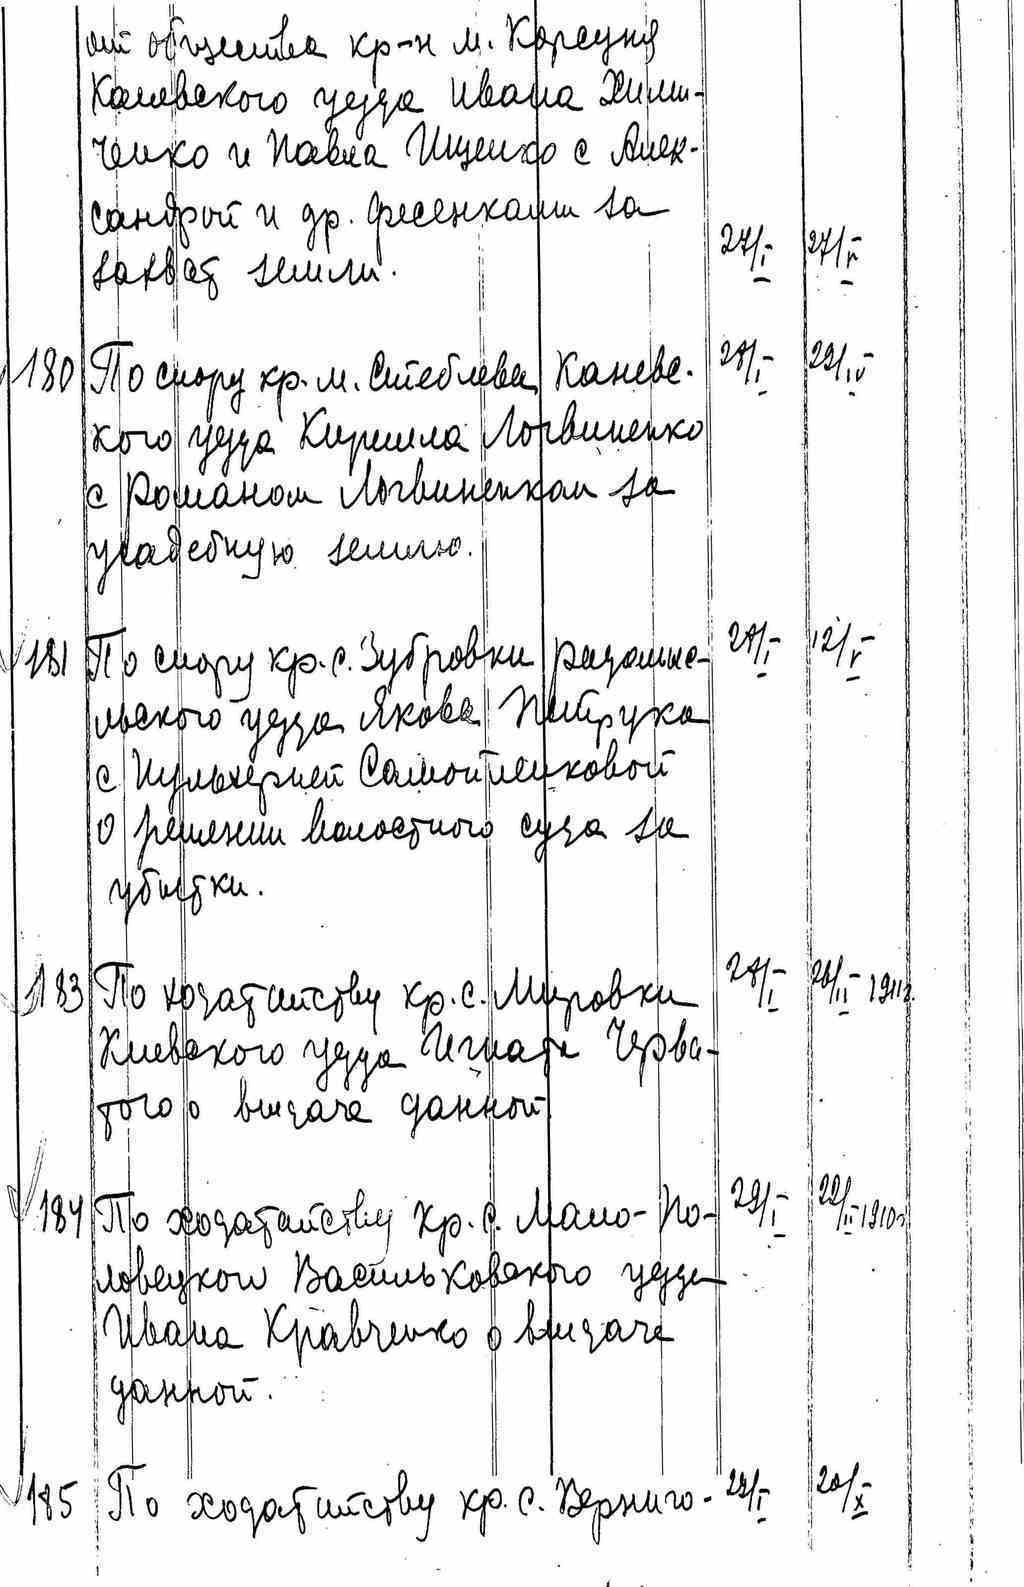 от общества кр-н м. Корсуня
Каневского уезда Ивана Хили-
ченко и Павла Ищенко с Алек-
сандрой и др. Фесенками за
захват земли. 27/I 27/V
180 По спору кр. м. Стеблева Каневс- 28/I 29/IV
кого уезда Кирилла Логвиненко
с Романом Логвиненком за
усадебную землю.
181 По спору кр. с. Зубровки Радомыс- 28/I 12/V
льского уезда Якова Петрука
с Пульхерией Самойленковой
о решении волостного суда за
убытки.
183 По ходатайству кр. с. Мировки 28/I 26/II 1911г.
Киевского уезда Игната Черва-
того о выдаче данной
184 По ходатайству кр. с. Мало-По- 29/I 22/II 1910г
ловецкого Васильковского уезда
Ивана Кравченко о выдаче
данной.
185 По ходатайству кр. с. Верниго- 29/I 20/X